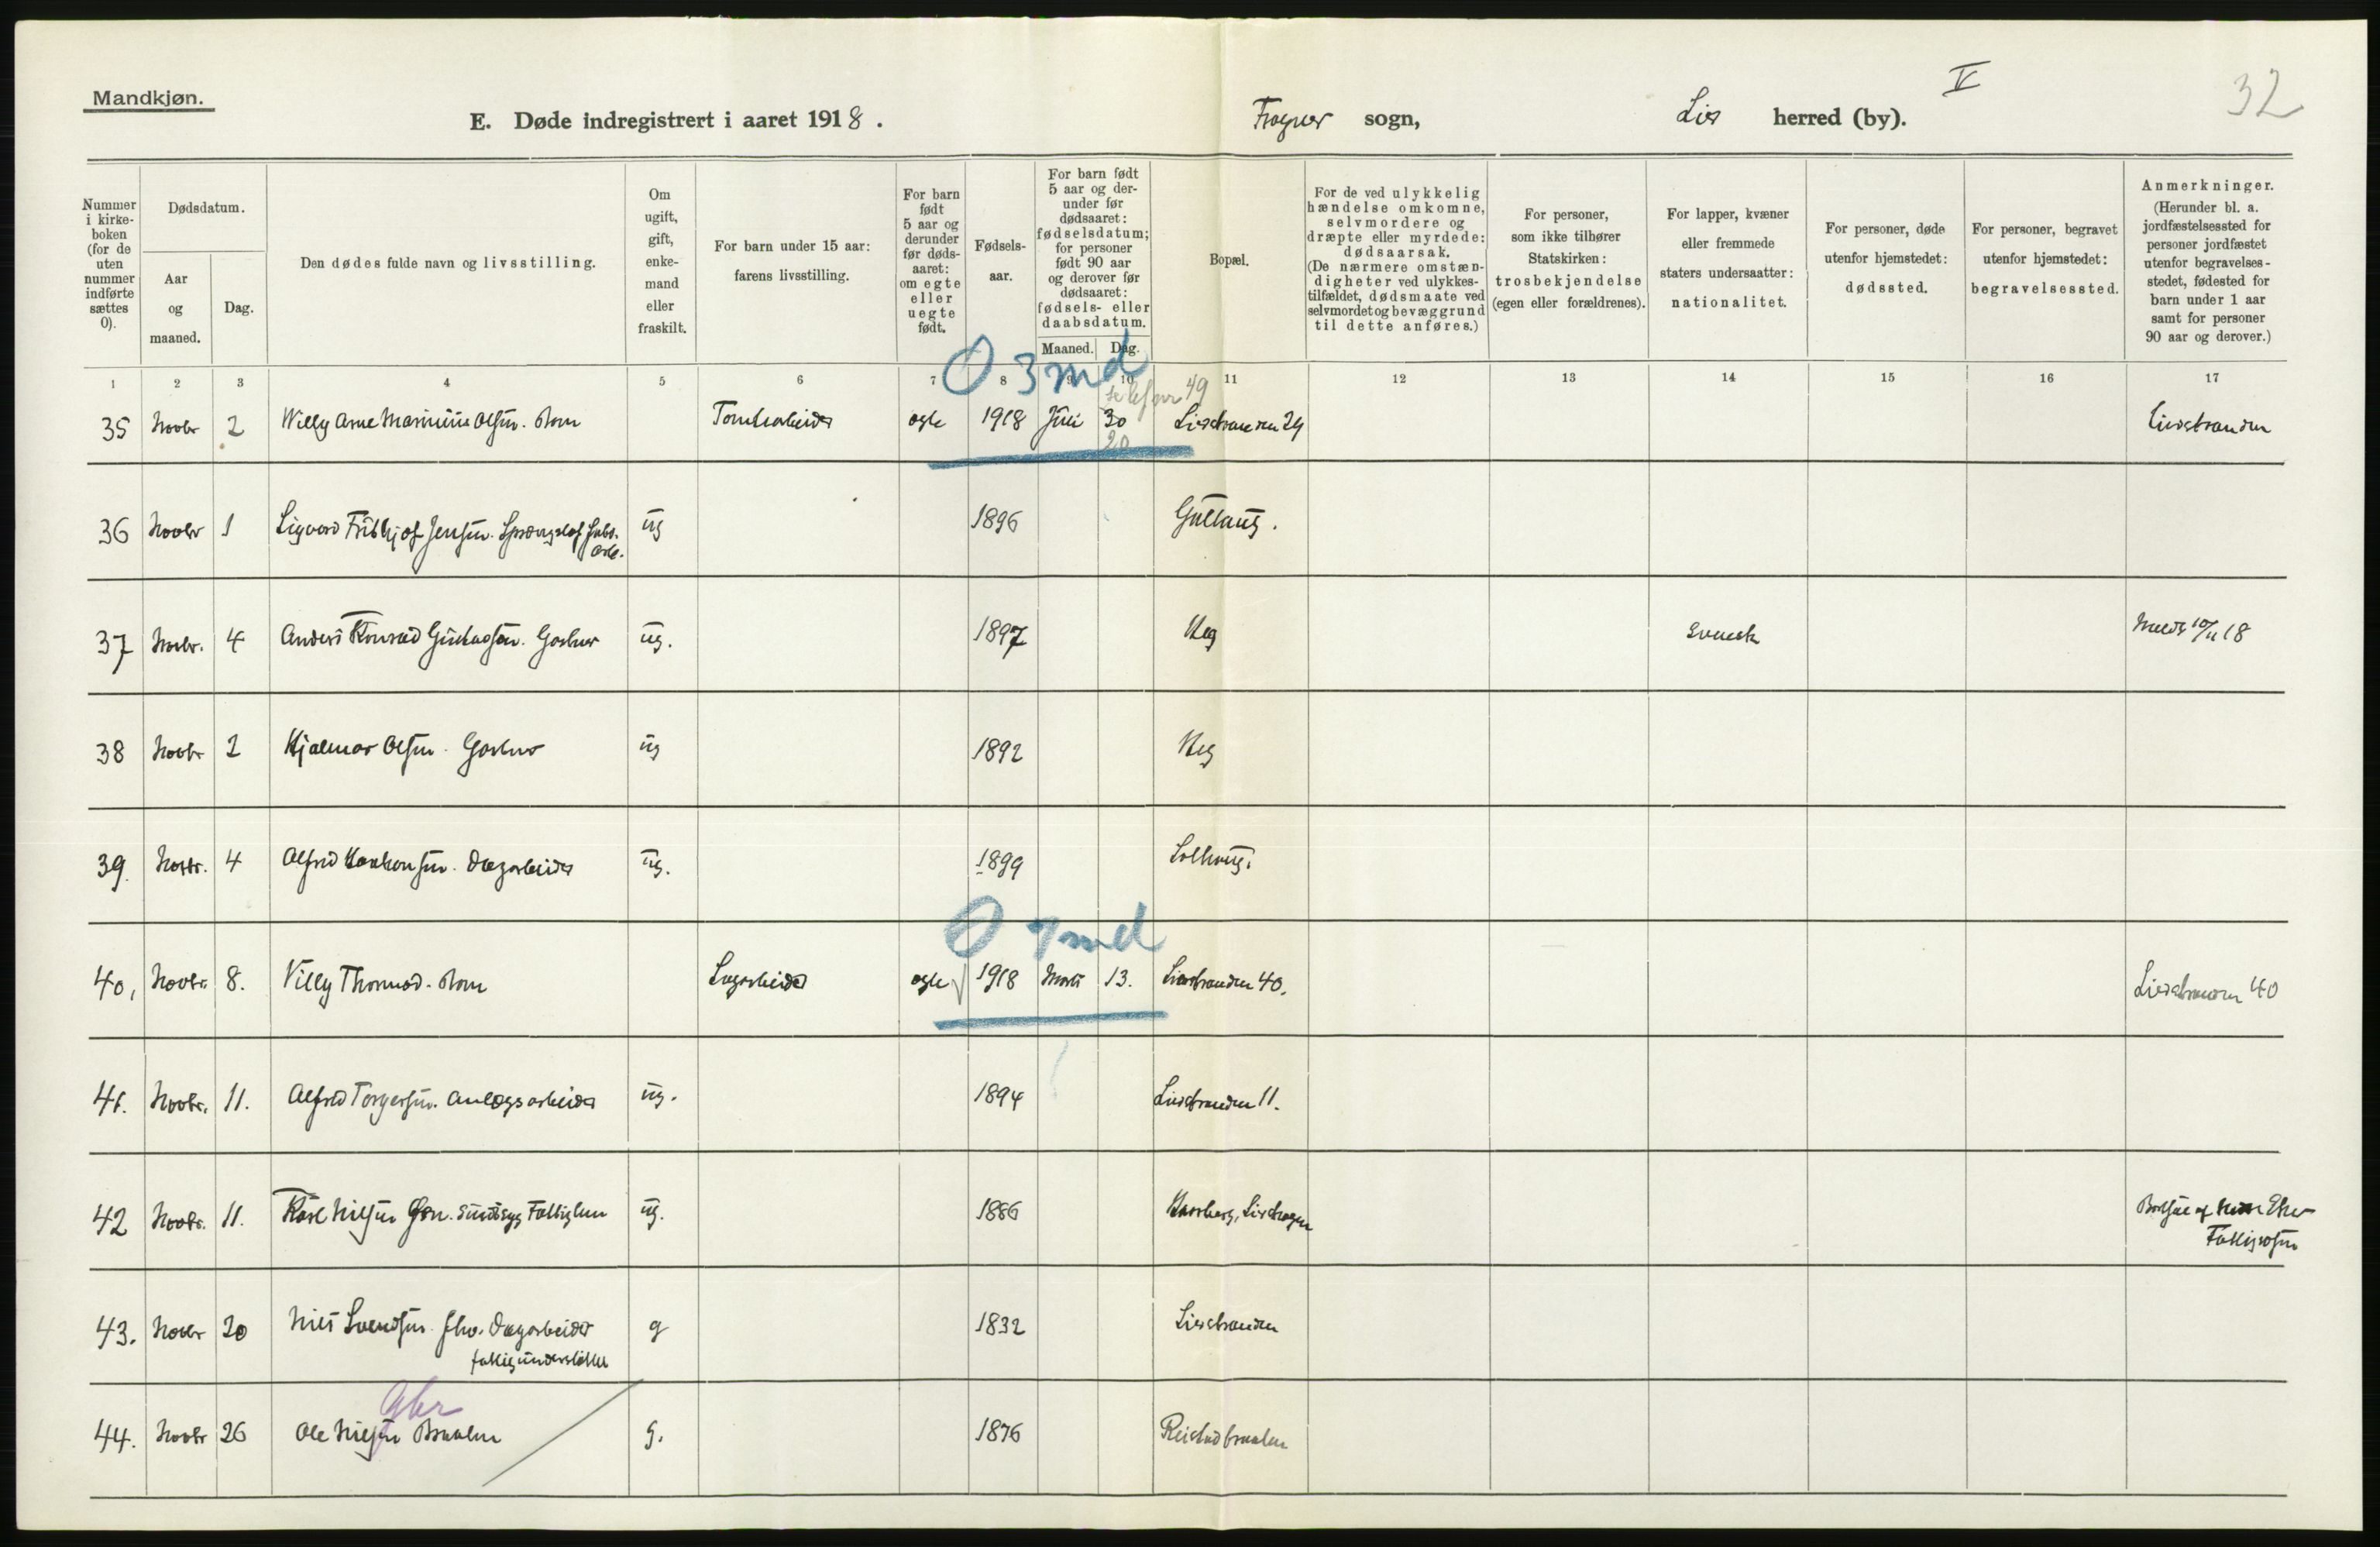 Mandkjøn.
E. Døde indregistrert i aaret 1918.
Frogner sogn,
Lier herred (by).
V
32
Nummer i kirke-boken (for de uten nummer indførte sættes 0).
Dødsdatum.
Aar og maaned.
Dag.
Den dødes fulde navn og livsstilling.
Om ugift, gift, enke-mand eller fraskilt.
For barn under 15 aar: farens livsstilling.
For barn født 5 aar og derunder før døds-aaret: om egte eller uegte født.
Fødsels-aar.
For barn født 5 aar og der-under før dødsaaret: fødselsdatum; for personer født 90 aar og derover før dødsaaret: fødsels- eller daabsdatum.
Maaned.
Dag.
Bopæl.
For de ved ulykkelig hændelse omkomne, selvmordere og dræpte eller myrdede: dødsaarsak. (De nærmere omstæn-digheter ved ulykkes-tilfældet, dødsmaate ved selvmordet og bevæggrund til dette anføres.)
For personer, som ikke tilhører Statskirken: trosbekjendelse (egen eller forældrenes).
For lapper, kvæner eller fremmede staters undersaatter: nationalitet.
For personer, døde utenfor hjemstedet: dødssted.
For personer, begravet utenfor hjemstedet: begravelsessted.
Anmerkninger. (Herunder bl. a. jordfæstelsessted for personer jordfæstet utenfor begravelses-stedet, fødested for barn under 1 aar samt for personer 90 aar og derover.)
1 2 3 4 5 6 7 8 9 10 11 12 13 14 15 16 17
0 3 md
49
35 Novbr 2 Willy Arne Marinius Olsen. Barn Tomtearbeider egte 1918 Juli 30 Lierstranden 29 Lierstranden
20
36 Novbr 1 Sigvard Fridthjof Jensen. Sprængstof fabr.
arb. ug 1896 Gullaug.
37 Novbr. 4 Anders Konrad Gustafsen. Gartner ug. 1897 Heg svensk 10/11 18
38 Novbr 2 Hjalmar Olsen. Gartner ug 1892 Heg
39. Novbr. 4 Alfred Haakonsen. Dagarbeider ug. 1899 Solhaug.
0 7 md
40. Novbr. 8. Villy Thormod. Barn Lagarbeider egte 1918 Marts 13. Lierstranden 40. Lierstranden 40
41. Novbr. 11. Alfred Torgersen. Anlægsarbeider ug. 1894 Lierstranden 11.
42 Novbr. 11. Karl Nilsen Sindssyg Fattiglem ug. 1886 Lierskogen
43. Novbr 20 Nils Svendsen fhv. Dagarbeider g 1832 Lierstranden
fattigunderstøttet
Gbr
44. Novbr 26 Ole Nilsen Braaten g. 1876 Reistadbraaten